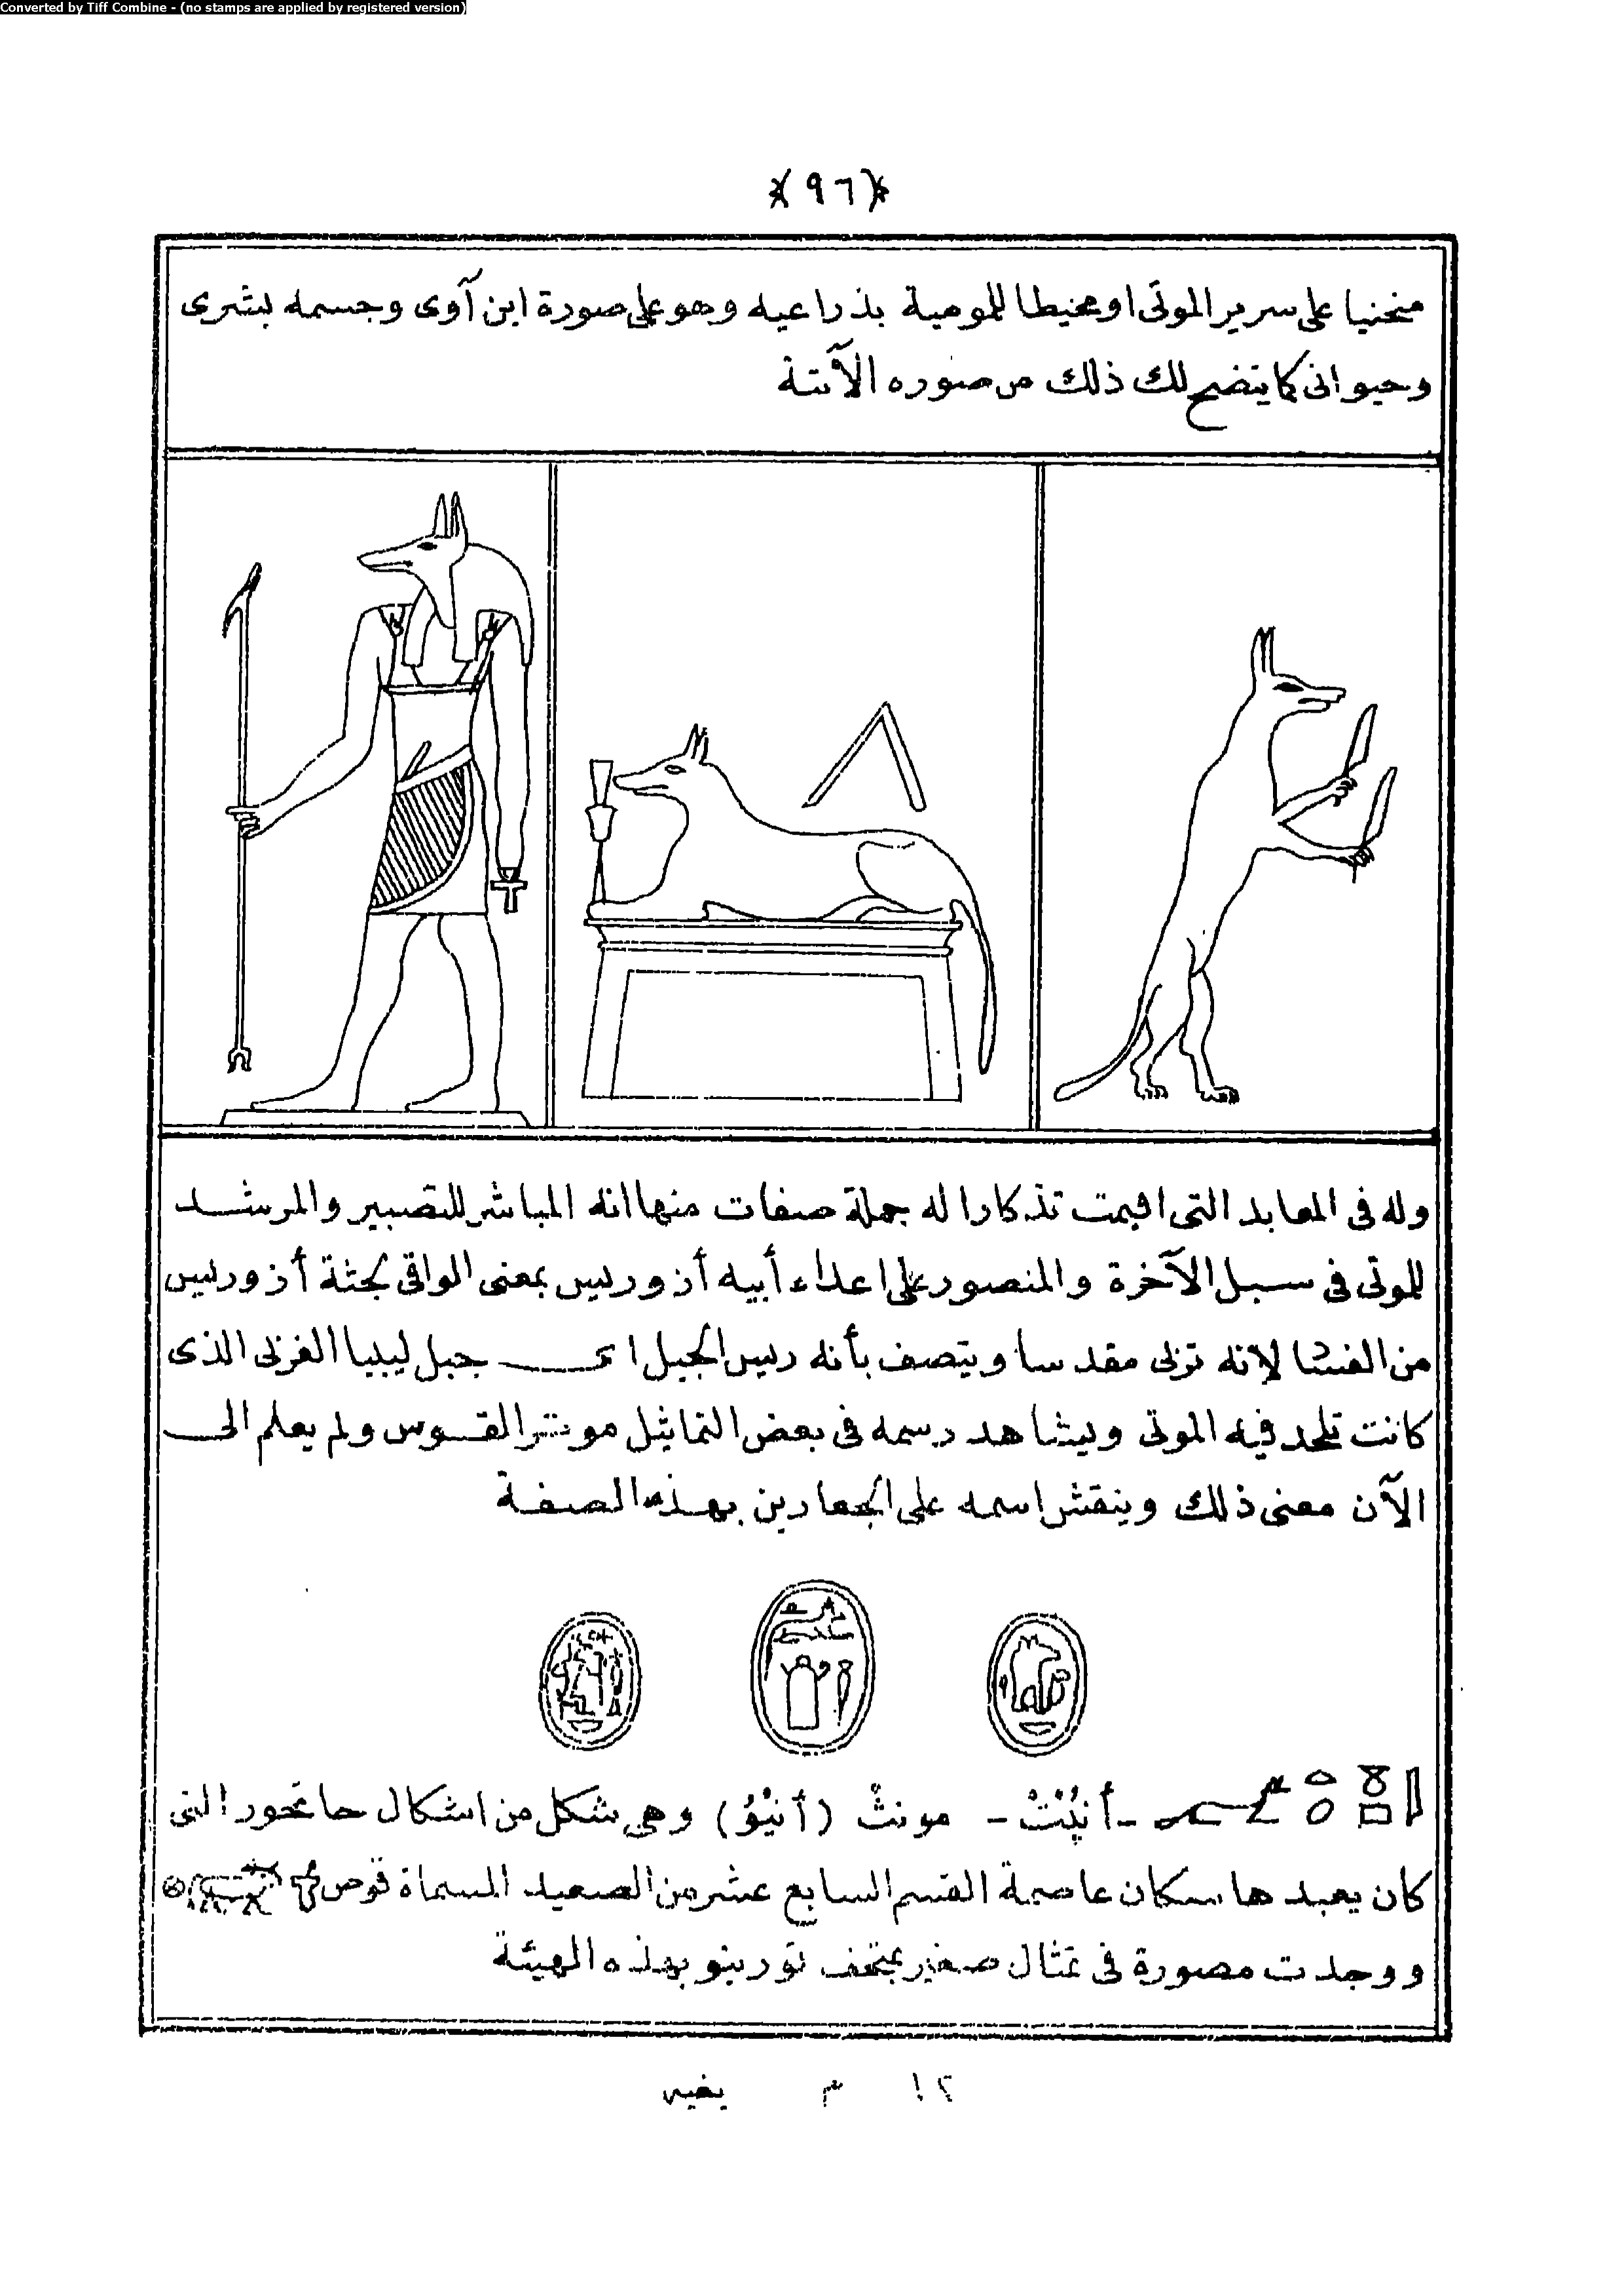 Converted by Tiff Combine - (no stamps are applied by registered version)
(٩٦)
منحنيا على سرير الموتى او محيطا للمومية بذراعيه وهو على صورة ابن آوى وجسمه بشرى
وحيوانى كما يتضح لك ذلك من صوره الآتية
وله فى المعابد التى اقيمت تذكارا له جملة صفات منها انه المباشر للتصبير والمرشد
للموتى فى سبل الآخرة والمنصور على اعداء أبيه أزوريس بمعنى الواقى لجثة أزوريس
من الفنا لانه تربى مقدسا ويتصف بأنه رئيس الجبل اى جبل ليبيا الغربى الذى
كانت تلحد فيه الموتى ويشاهد رسمه فى بعض التماثيل موتر القوس ولم يعلم الى
الآن معنى ذلك وينقش اسمه على الجعارين بهذه الصفة
- أَنُپِتْ - مونث (أَنيُوُ) وهى شكل من اشكال حاتحور التى
كان يعبدها سكان عاصمة القسم السابع عشر من الصعيد المسماة قوص
ووجدت مصورة فى تمثال صغير بمتحف تورينو بهذه الهيئة
١٢ م